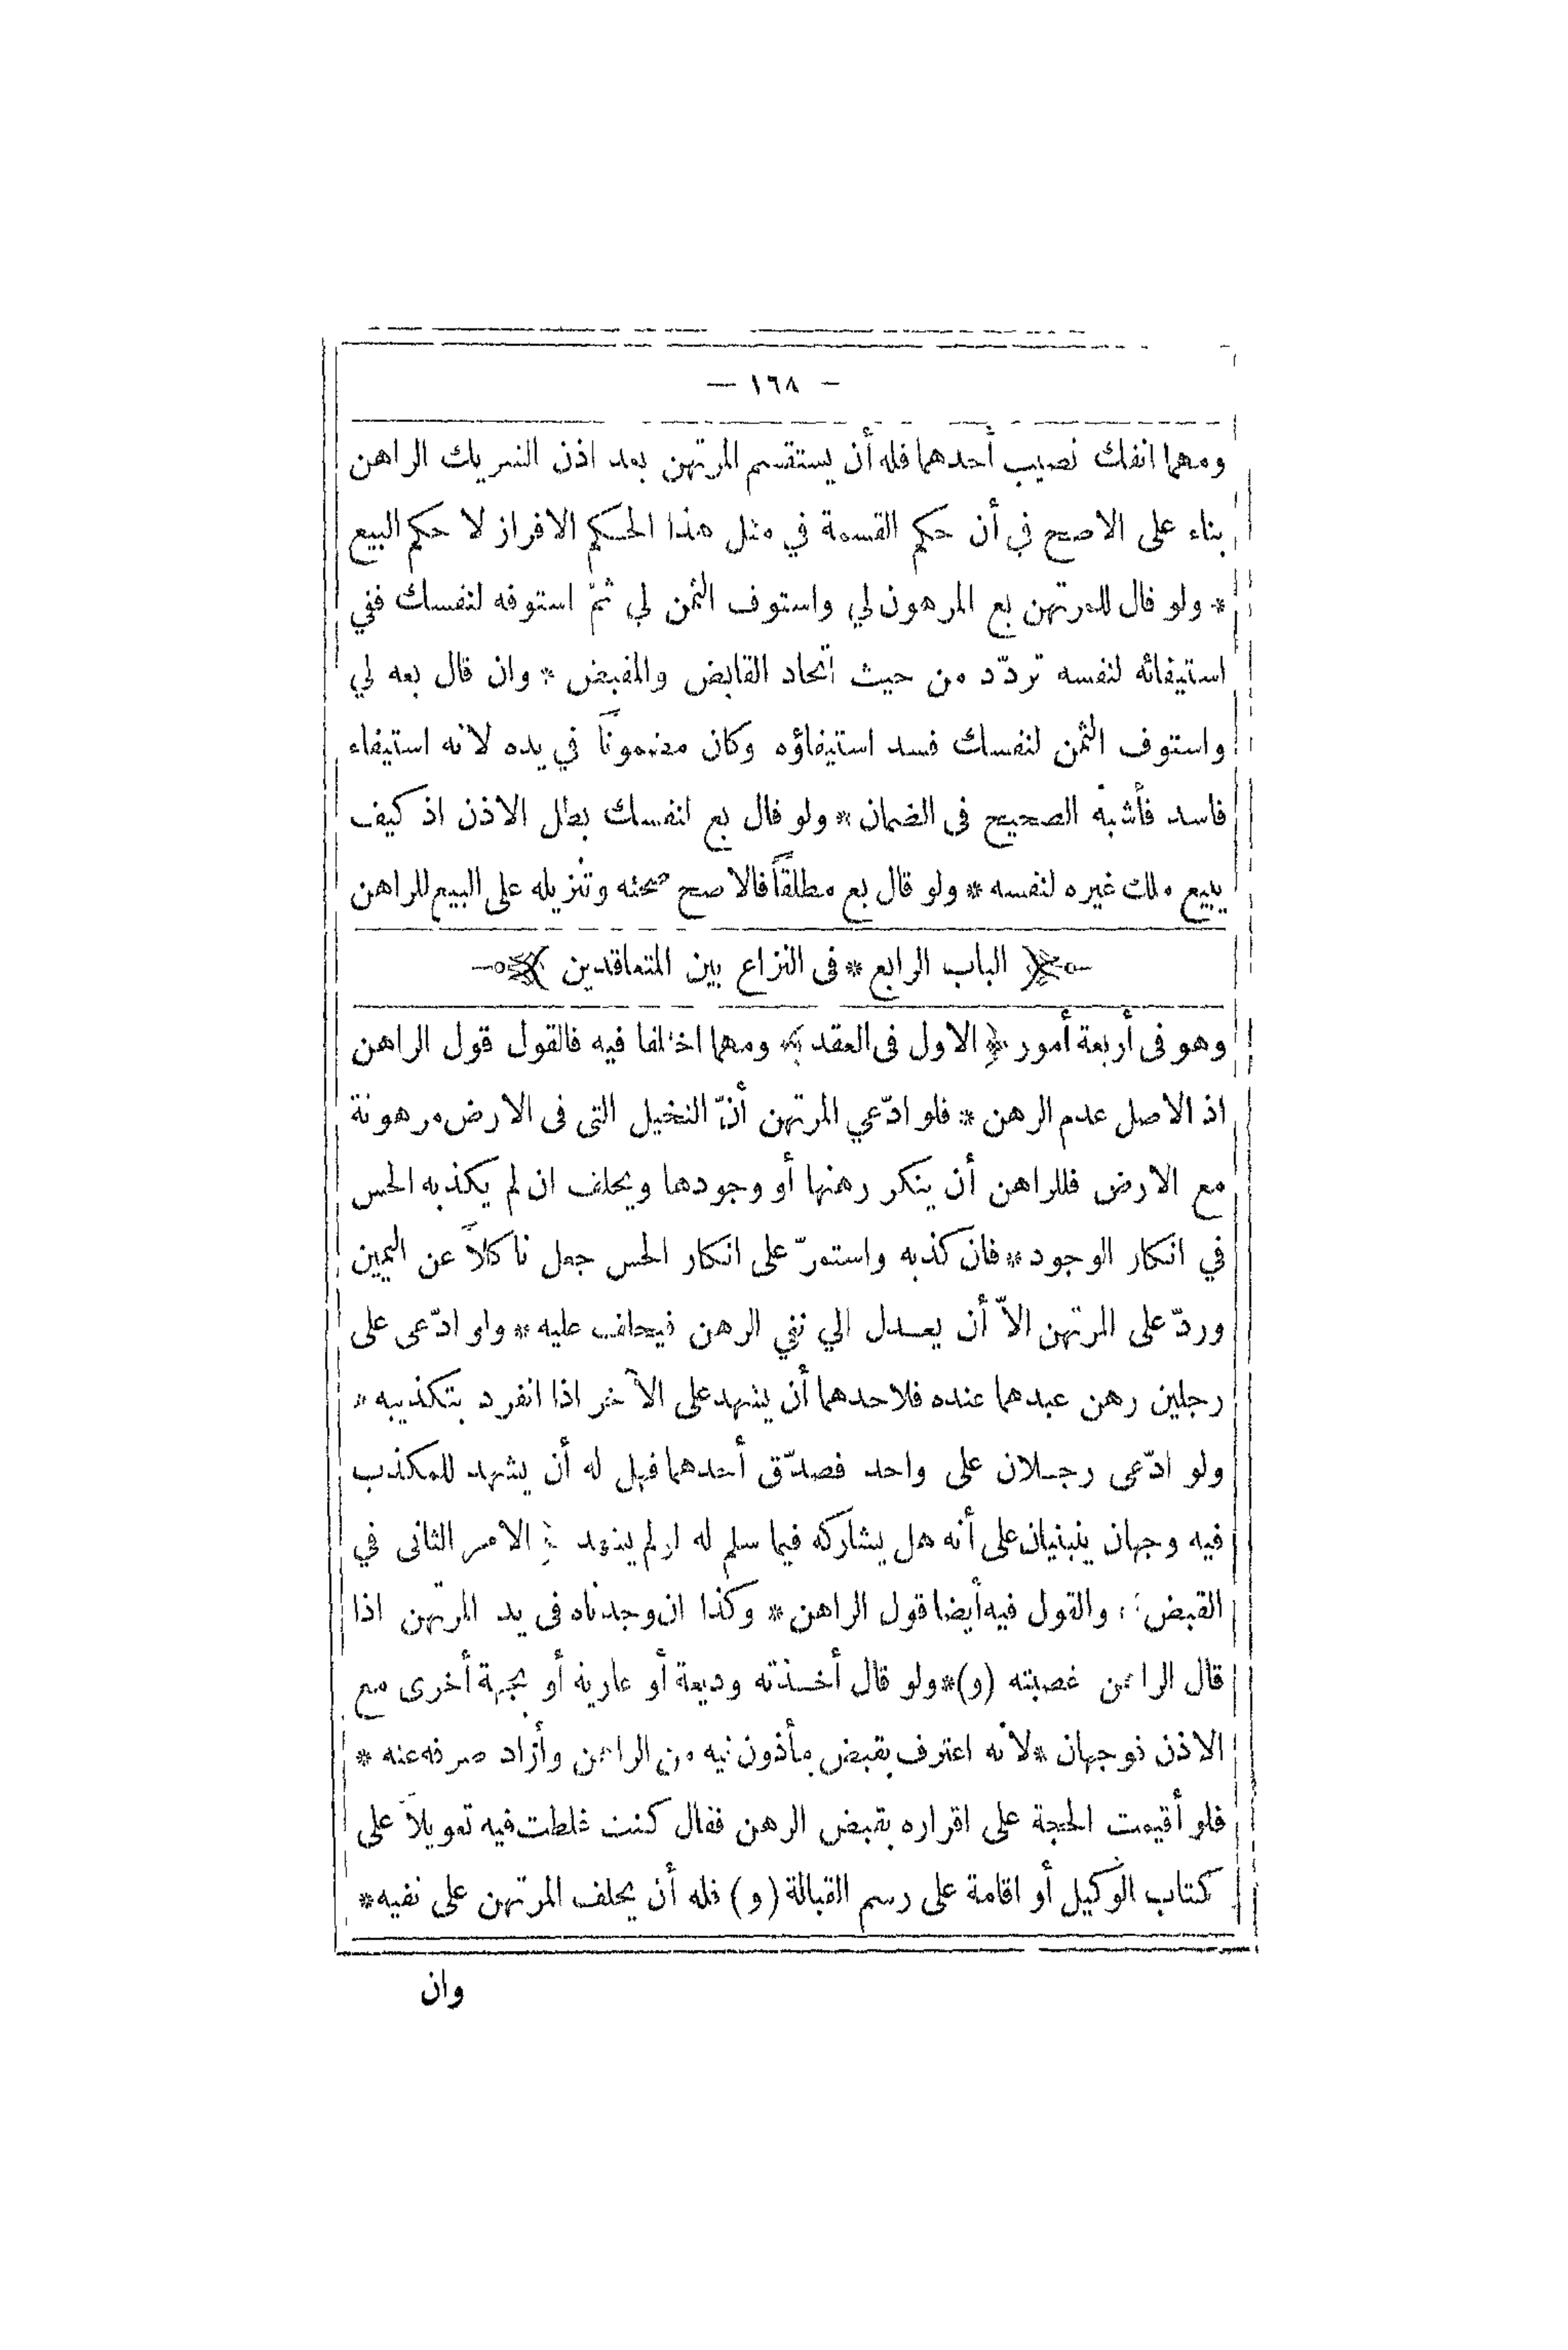 — ١٦٨ —
ومهما انفك نصيب أحدهما فله أن يستقسم المرتهن بعد اذن الشريك الراهن
بناء على الاصح في أن حكم القسمة في مثل هذا الحكم الافراز لا حكم البيع
* ولو قال للمرتهن بع المرهون لي واستوف الثمن لي ثمّ استوفه لنفسك ففي
استيفائه لنفسه تردّد من حيث اتحاد القابض والمقبض * وان قال بعه لي
واستوف الثمن لنفسك فسد استيفاؤه وكان مضموناً في يده لانه استيفاء
فاسد فأشبه الصحيح فى الضمان * ولو قال بع لنفسك بطل الاذن اذ كيف
يبيع ملك غيره لنفسه * ولو قال بع مطلقاً فالاصح صحته وتنزيله على البيع للراهن
﴿ الباب الرابع * فى النزاع بين المتعاقدين ﴾
وهو فى أربعة أمور ﴿ الاول فى العقد ﴾ ومهما اختلفا فيه فالقول قول الراهن
اذ الاصل عدم الرهن * فلو ادّعي المرتهن أنّ النخيل التى فى الارض مرهونة
مع الارض فللراهن أن ينكر رهنها أو وجودها ويحلف ان لم يكذبه الحس
في انكار الوجود * فان كذبه واستمرّ على انكار الحس جعل ناكلاً عن اليمين
وردّ على المرتهن الاّ أن يعدل الي نفي الرهن فيحلف عليه * ولو ادّعى على
رجلين رهن عبدهما عنده فلاحدهما أن يشهد على الآخر اذا انفرد بتكذيبه *
ولو ادّعى رجلان على واحد فصدّق أحدهما فهل له أن يشهد للمكذب
فيه وجهان ينبنيان على أنه هل يشاركه فيما سلم له لو لم يشهد ﴿ الامر الثانى في
القبض ﴾ والقول فيه أيضا قول الراهن * وكذا ان وجدناه فى يد المرتهن اذا
قال الراهن غصبته (و) * ولو قال أخذته وديعة أو عارية أو بجهة أخرى مع
الاذن فوجهان * لانه اعترف بقبض مأذون فيه من الراهن وأراد صرفه عنه *
فلو أقيمت الحجة على اقراره بقبض الرهن فقال كنت غلطت فيه تعويلاً على
كتاب الوكيل أو اقامة على رسم القبالة (و) فله أن يحلف المرتهن على نفيه *
وان